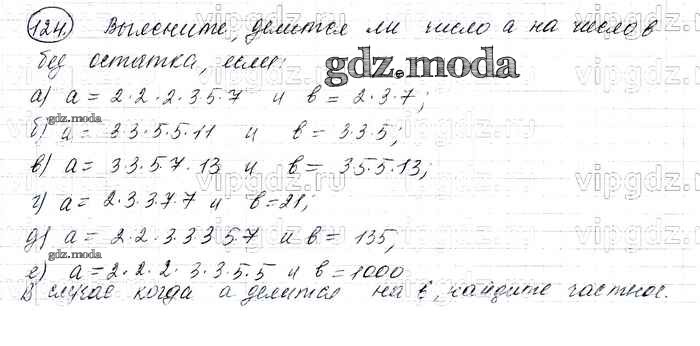 124. Выясните, делится ли число а на число в
без остатка, если:
gdz.moda
а) а = 2·2·2·3·5·7 и в = 2·3·7;
gdz.moda
б) а = 3·3·5·5·11 и в = 3·3·5;
в) а = 3·3·5·7·13 и в = 3·5·5·13;
г) а = 2·3·3·7·7 и в = 21;
д) а = 2·2·3·3·3·5·7 и в = 135,
gdz.moda
е) а = 2·2·2·3·3·5·5 и в = 1000
В случае когда а делится на в, найдите частное.
vipgdz.ru
vipgdz.ru
vipgdz.ru
vipgdz.ru